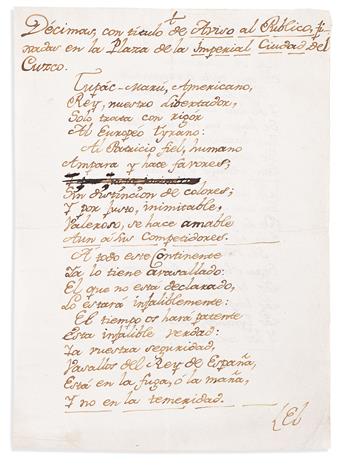 Décimas, con título de Aviso al Público, fi-
xadas en la Plaza de la Imperial Ciudad del
Cuzco.
Tupác-Marú, Americano,
Rey, nuestro Libertador,
Solo trata con rigór
Al Européo Tyrano:
Al Patricio fiel, humano
Ampara y hace favores;
Sin distincion de colores;
Y por justo, inimitable,
Valeroso, se hace amable
Aun a sus Competidores.
A todo este Continente
Ya lo tiene avasallado:
El que no esta declarado,
Lo estará infaliblemente:
El tiempo os hará patente
Esta infalible verdad:
Ya vuestra seguridad,
Vasallos del Rey de España,
Está en la fuga, ó la maña,
Y no en la temeridad.